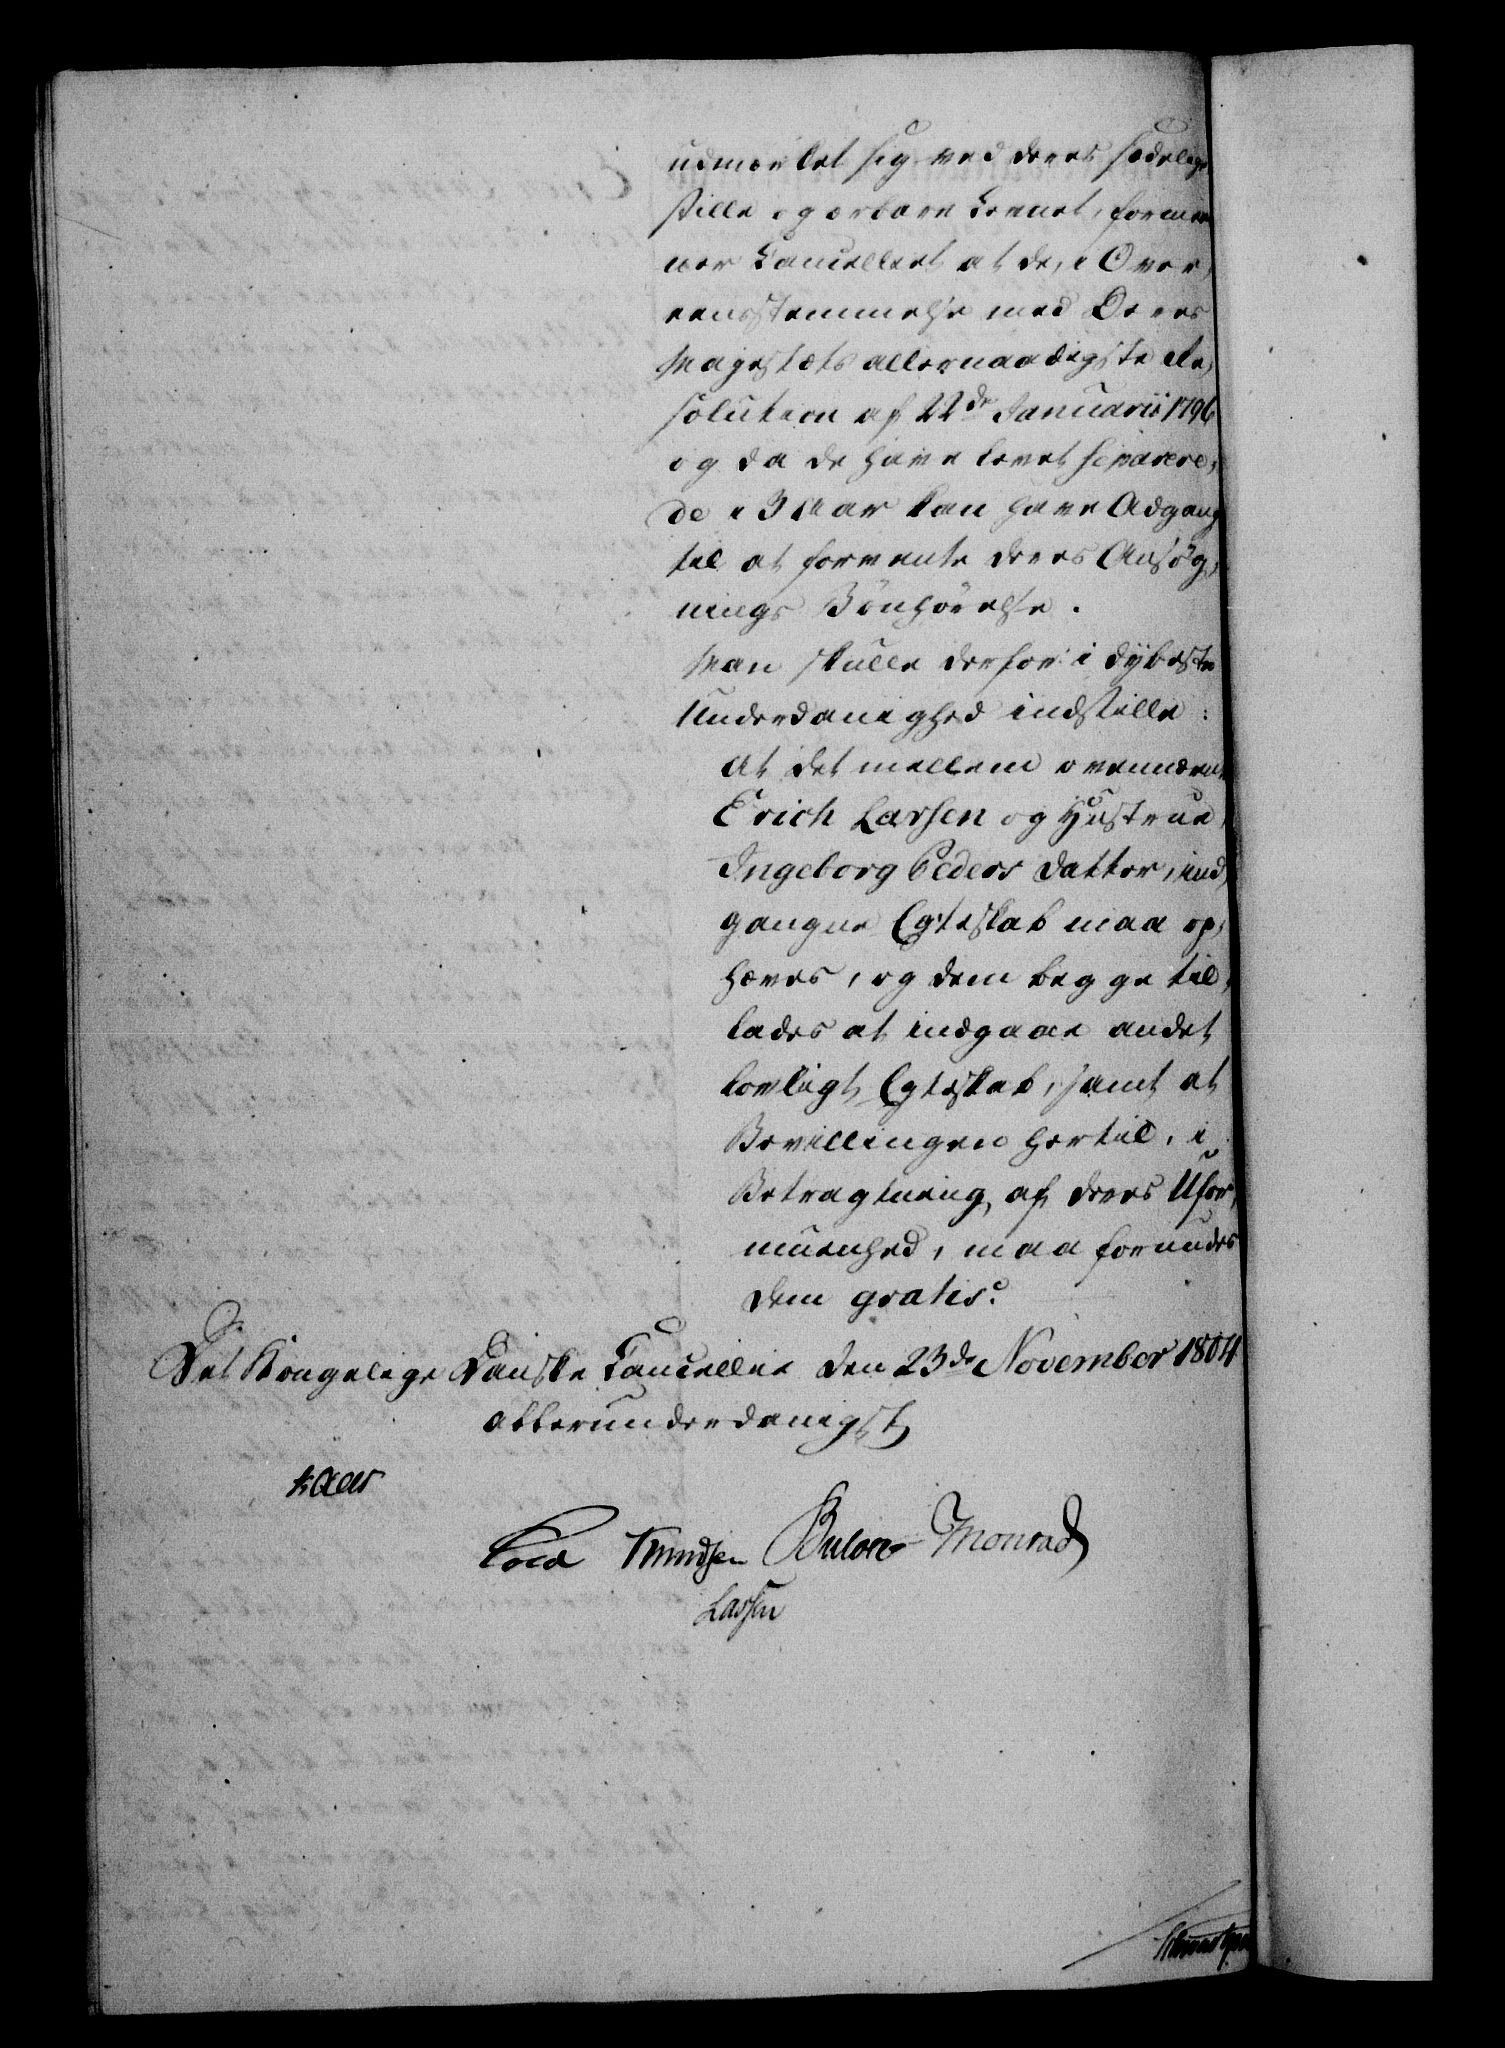 udmærket sig ved deres sædelige
stille og ærbare Levnet, formee
ner Cancelliet at de, i Over,
eensstemmelse med Deres
Majestæts allernaadigste Re,
solution af 22de Januarii 1796
og da de have levet separere,
de i 3 Aar kan have Adgang
til at forvente deres Ansøg,
nings Bönhörelse.
Man skulle derfor i dybeste
Underdanighed indstille:
At det mellem ovennævnte
Erich Larsen og Hustrue,
Ingeborg Peders Datter, ind,
gangne Egteskab maa op,
hæves, og dem begge til,
lades at indgaae andet
lovligt Egteskab, samt at
Bevillingen hertil, i
Betragtning af deres Ufor,
muenhed, maa forundes
dem gratis?
Det Kongelige Danske Cancellie den 23de November 1804
allerunderdanigst
Kaas
Cold Knudsen Bulow Monrad
Lassen